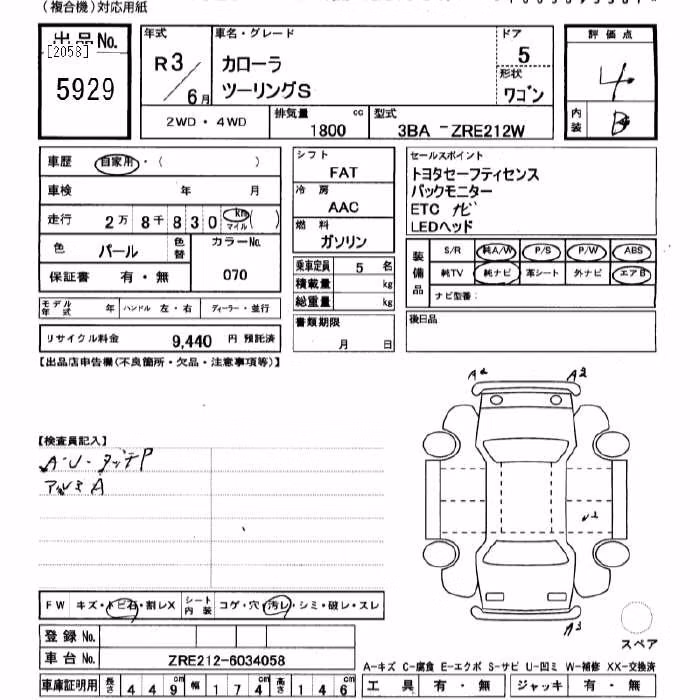 (複合機)対応用紙
出品No.
[2058]
5929
年式
R3/6月
車名・グレード
カローラ
ツーリングS
ドア
5
形状
ワゴン
評価点
4
内装
B
2WD・4WD
排気量
1800 cc
型式
3BA-ZRE212W
車歴 自家用・( )
車検 年 月
走行 2万8千830 km マイル ( )
色 パール 色替
カラーNo.
070
保証書 有・無
モデル年式 年 ハンドル 左・右 ディーラー・並行
リサイクル料金 9,440 円 預託済
シフト
FAT
冷房
AAC
燃料
ガソリン
乗車定員 5 名
積載量 kg
総重量 kg
書類期限
月 日
セールスポイント
トヨタセーフティセンス
バックモニター
ETC ナビ
LEDヘッド
装備品
S/R 純A/W P/S P/W ABS
純TV 純ナビ 革シート 外ナビ エアB
ナビ型番:
後日品
【出品店申告欄(不良箇所・欠品・注意事項等)】
【検査員記入】
A・U・タッチP
アルミA
A2 A2
A3
スペア
FW キズ・トビ石・割レX
シート内装 コゲ・穴・汚レ・シミ・破レ・スレ
登録No.
車台No. ZRE212-6034058
車庫証明用 長さ 449cm 幅 174cm 高さ 146cm
A-キズ C-腐食 E-エクボ S-サビ U-凹ミ W-補修 XX-交換済
工具 有・無 ジャッキ 有・無